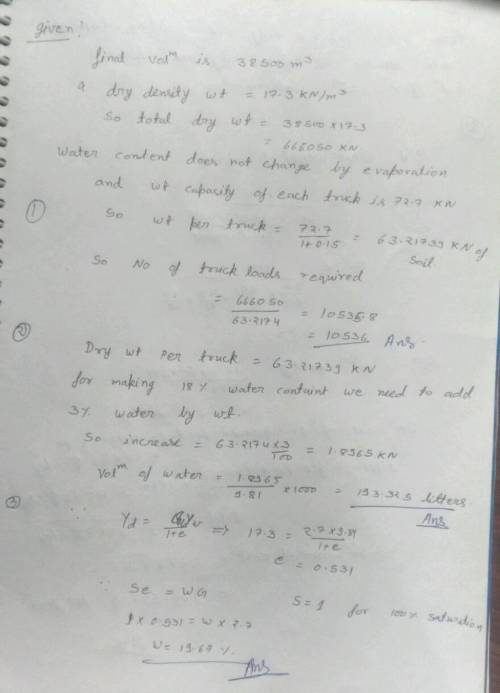 given!
final vol^m is 38500 m³
& dry density wt = 17.3 KN/m³
So total dry wt = 38500 × 17.3
= 666050 KN
Water content does not change by evaporation
and wt capacity of each truck is 72.7 KN
① So wt per truck = 72.7 / 1+0.15 = 63.21739 KN of soil
So No of truck loads required
= 666050 / 63.2174 = 10535.8
= 10536 Ans.
② Dry wt per truck = 63.21739 KN
for making 18% water containt we need to add
3% water by wt.
So increase = 63.2174×3 / 100 = 1.8965 KN
Vol^m of water = 1.8965 / 9.81 × 1000 = 193.323 litters
Ans
③ γd = Gγw / 1+e ⇒ 17.3 = 2.7×9.81 / 1+e
e = 0.531
∴ Se = WG S=1 for 100% saturation
1 × 0.531 = W × 2.7
W = 19.67 %.
Ans